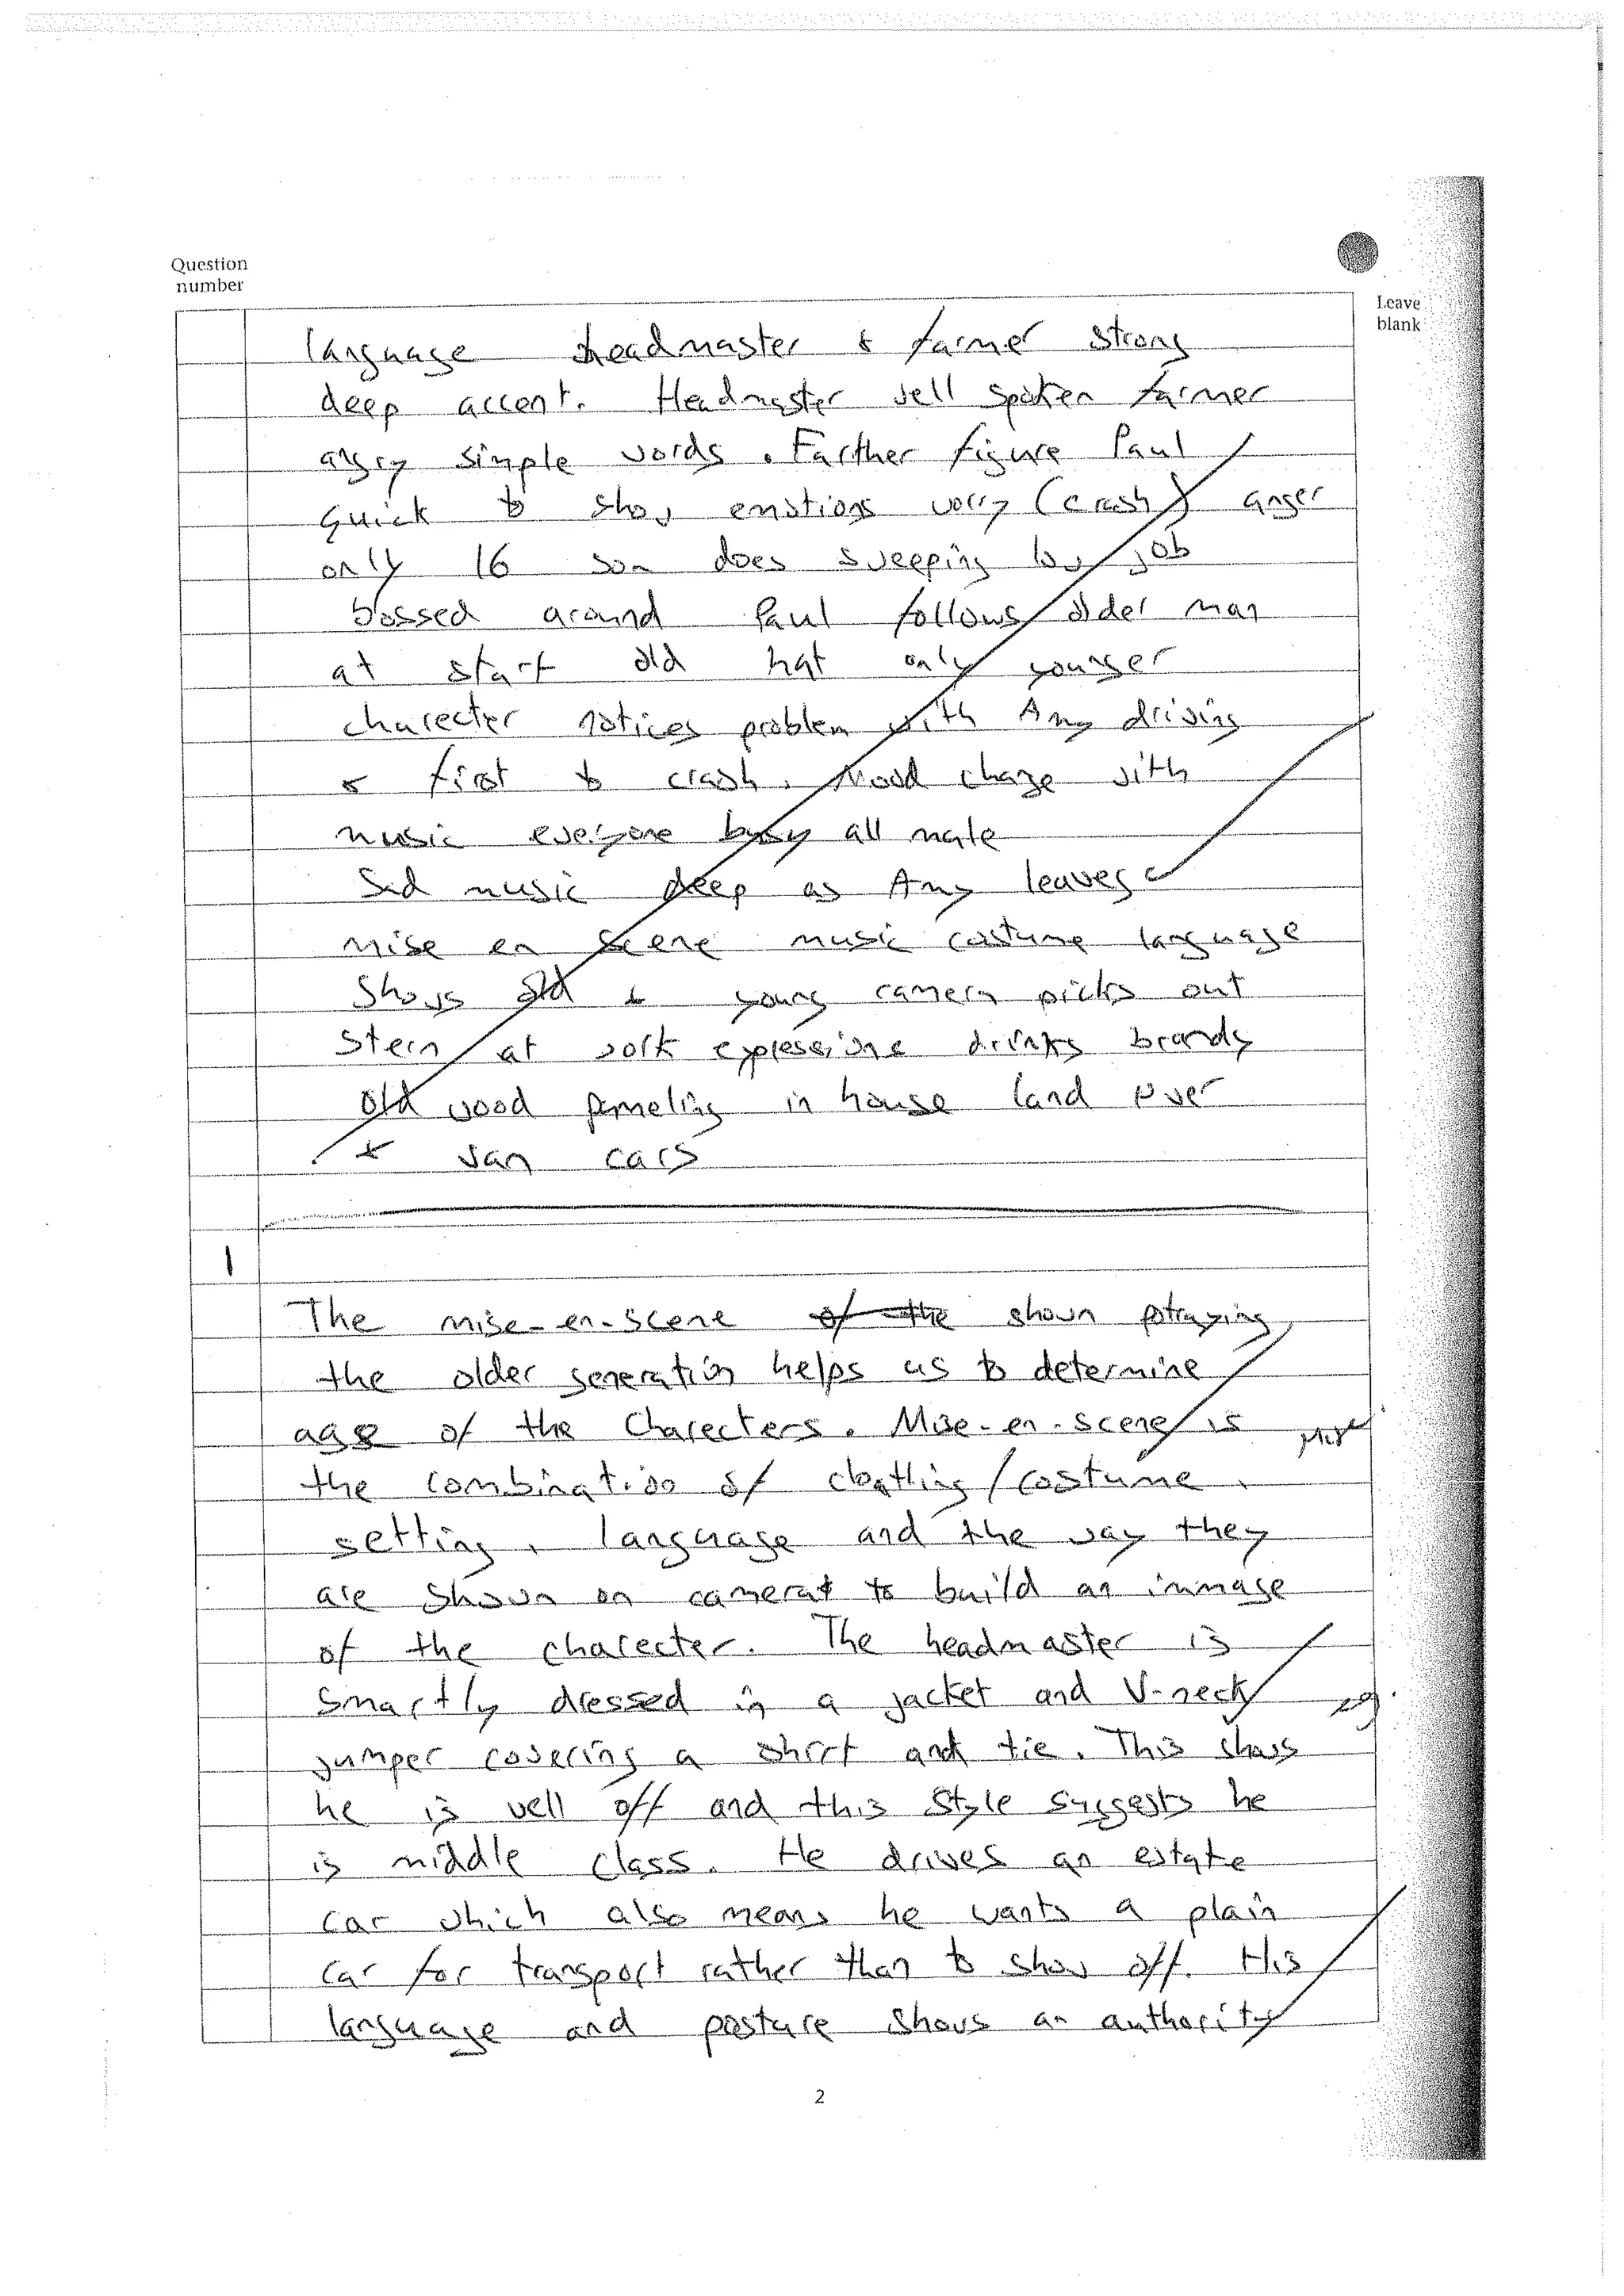 Question
number
Leave
blank
language headmaster & farmer strong
deep accent. Headmaster well spoken farmer
angry simple words. Farther figure Paul
quick to show emotions worry (crash) anger
only 16 son does sweeping low job
bossed around Paul follows older man
at start old hat only younger
charecter notices problem with Amy driving
& first to crash. Mood change with
music everyone busy all male
Sad music deep as Amy leaves
mise en scene music costume language
Shows old & young camera picks out
stern at work expressions drinks brandy
old wood paneling in house land over
& van cars
1
The mise-en-scene of the shown potraying
the older generation helps us to determine
age of the Charecters. Mise-en-scene is
the combination of cloathing/costume,
setting, language and the way they
are shown on camera to build an immage
of the charecter. The headmaster is
smartly dressed in a jacket and V-neck
eg.
jumper covering a shirt and tie. This shows
he is well off and this style suggests he
is middle class. He drives an estate
car which also means he wants a plain
car for transport rather than to show off. His
language and posture shows an authority
2